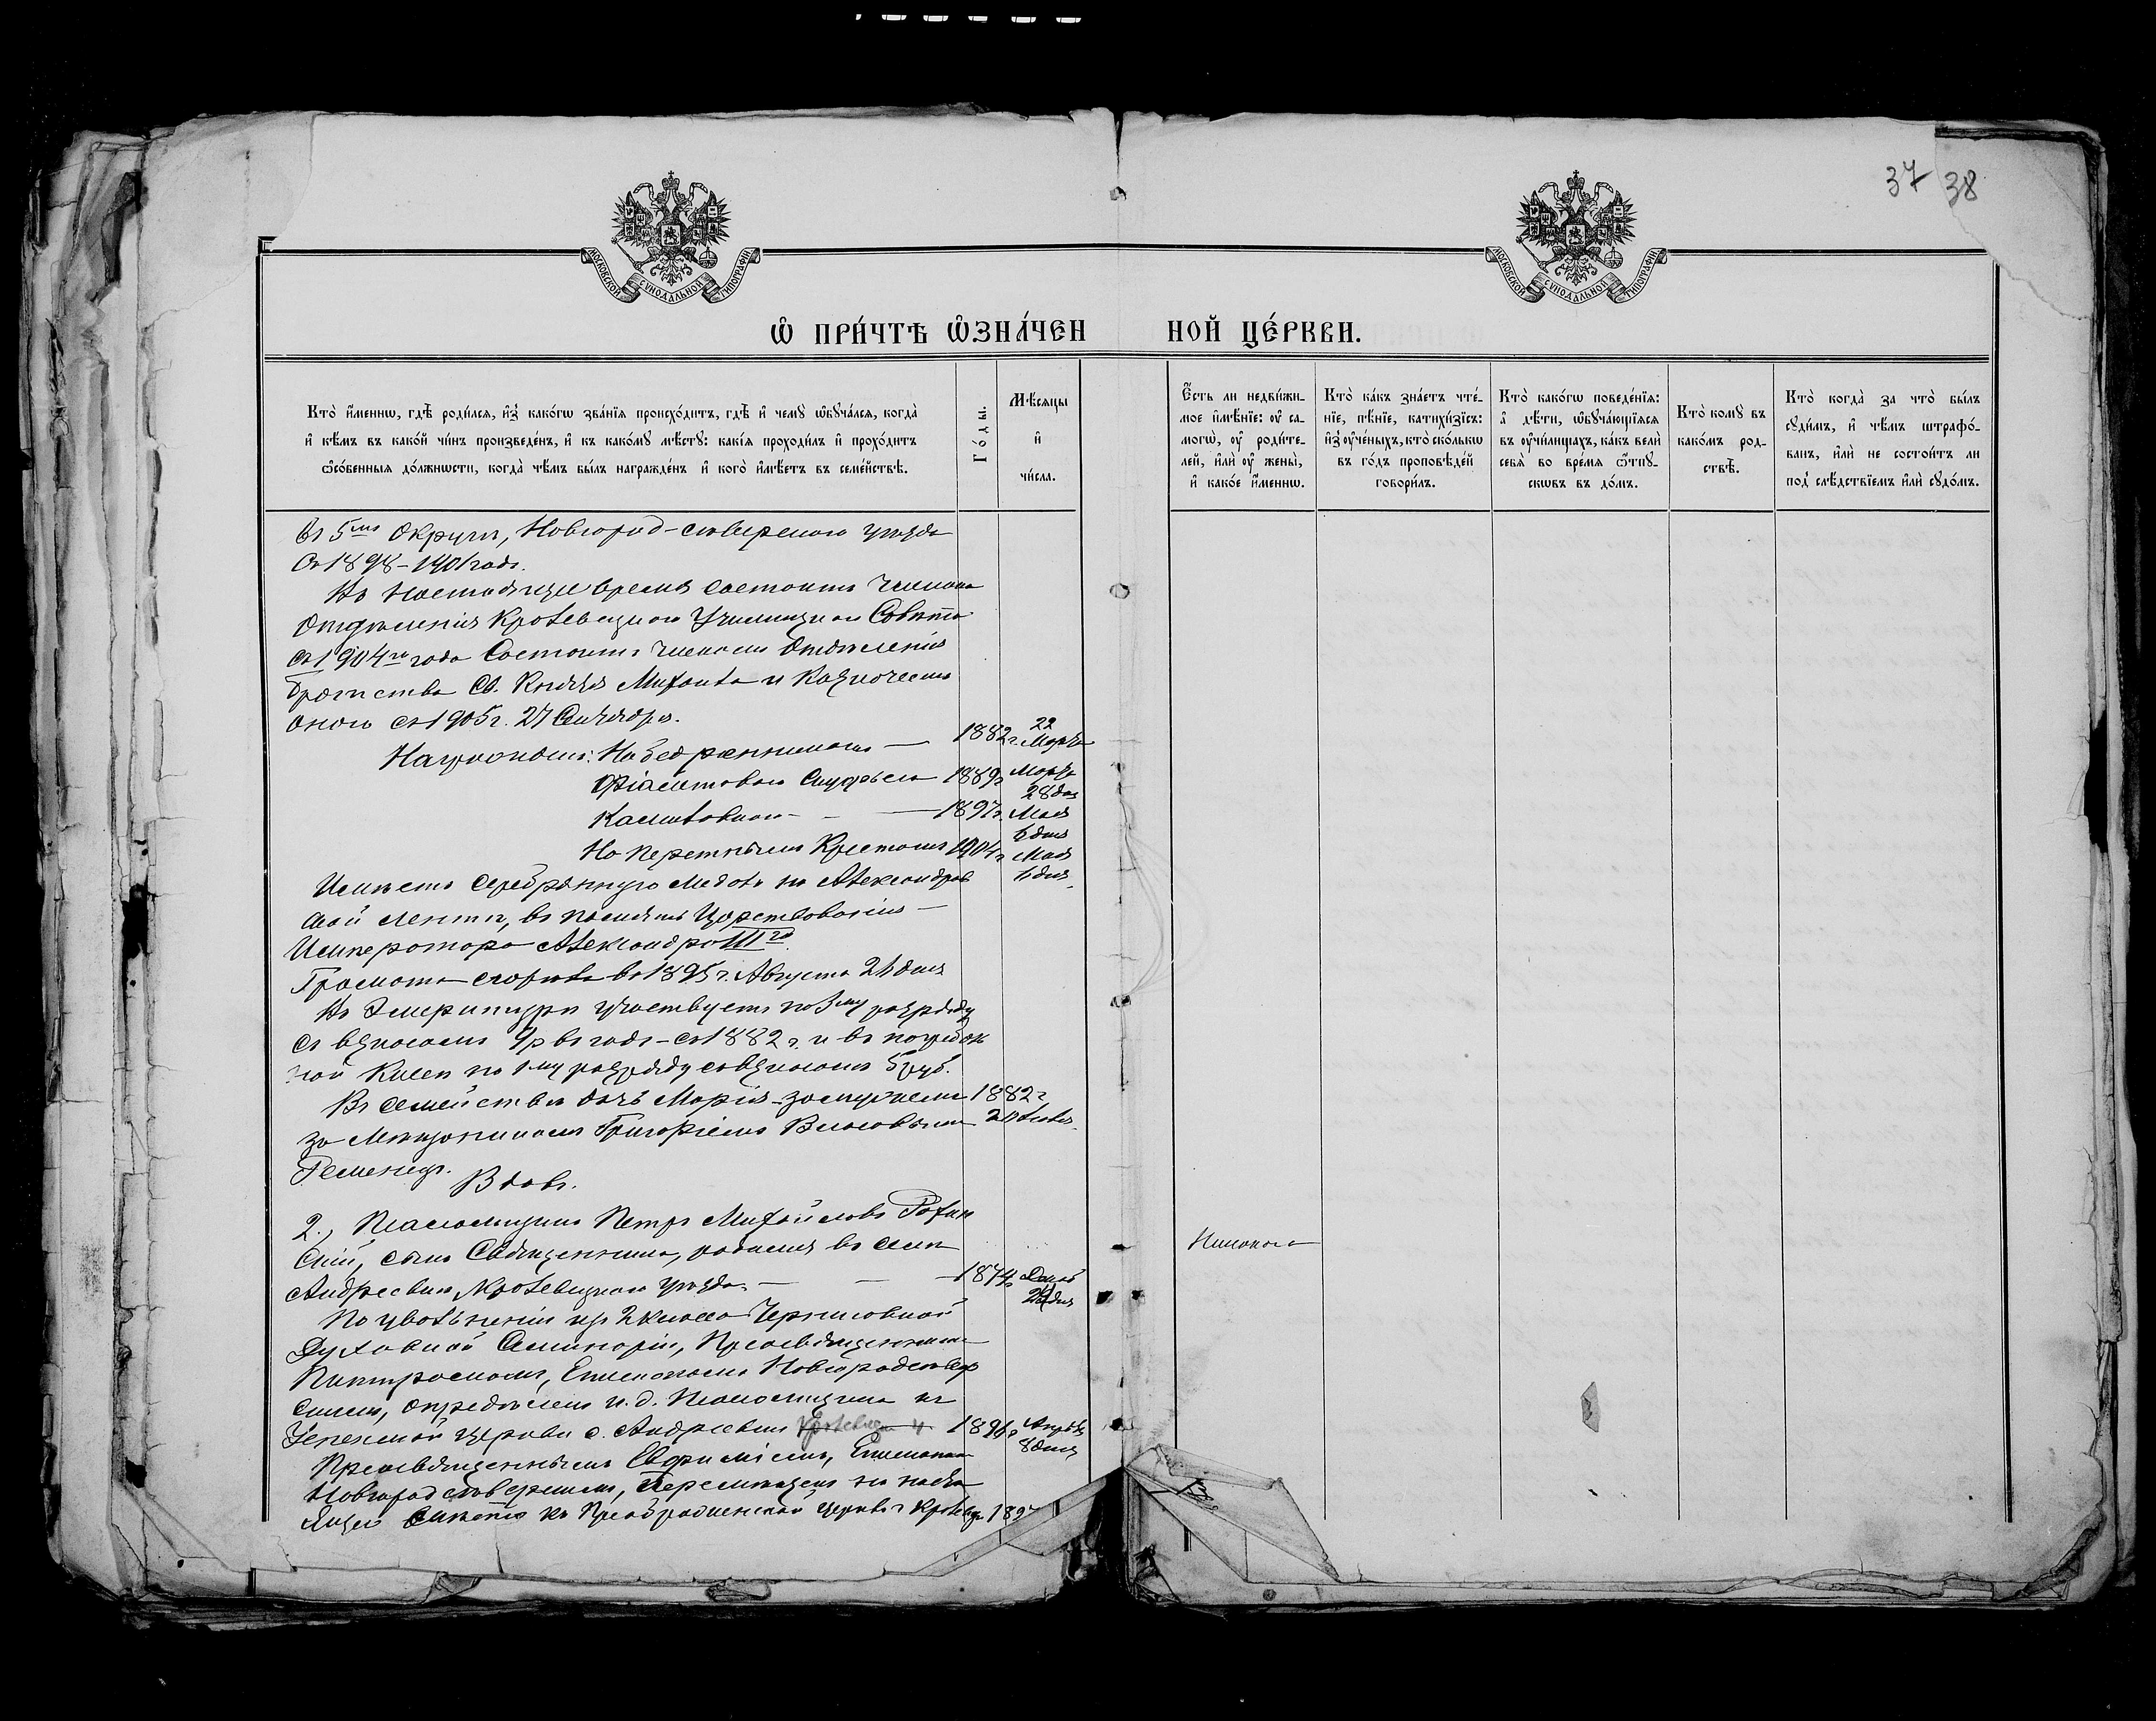 37 38
МОСКОВСКОЙ СѴНОДАЛЬНОЙ ТИПОГРАФІИ
МОСКОВСКОЙ СѴНОДАЛЬНОЙ ТИПОГРАФІИ
Ѡ ПРИ́ЧТѢ ѠЗНА́ЧЕННОЙ ЦЕ́РКВИ.
Кто̀ и҆́меннѡ, гдѣ̀ роди́лсѧ, и҆з̾ какѡ́гѡ зва́нїѧ происхо́дитъ, гдѣ̀ и҆ чемꙋ̀ ѡ҆бꙋча́лсѧ, когда̀
и҆ кѣ́мъ въ како́й чи́нъ произведе́нъ, и҆ къ како́мꙋ мѣ́стꙋ: какі́ѧ проходи́лъ и҆ прохо́дитъ
ѻ҆со́бенныѧ до́лжнѡсти, когда̀ чѣ́мъ бы́лъ награжде́нъ и҆ кого̀ и҆мѣ́етъ въ семе́йствѣ.
Го́ды.
Мѣ́сѧцы
и҆
чи́сла.
Є҆́сть ли недви́жи-
мое и҆мѣ́нїе: ᲂу҆ са-
могѡ̀, ᲂу҆ роди́те-
лей, и҆лѝ ᲂу҆ жены̀,
и҆ како́е и҆́меннѡ.
Кто̀ ка́къ зна́етъ чте́-
нїе, пѣ́нїе, катихи́зїсъ:
и҆з̾ ᲂу҆че́ныхъ, кто̀ ско́лькѡ
въ го́дъ проповѣ́дей
говори́лъ.
Кто̀ какѡ́гѡ поведе́нїѧ:
а҆ дѣ́ти, ѡ҆бꙋча́ющїѧсѧ
въ ᲂу҆чи́лищахъ, ка́къ велѝ
себѧ̀ во вре́мѧ ѿпꙋ-
скѡвъ въ до́мъ.
Кто̀ комꙋ̀ въ
како́мъ род-
ствѣ̀.
Кто̀ когда̀ за что̀ бы́лъ
сꙋди́мъ, и҆ чѣ́мъ штрафо́-
ванъ, и҆лѝ не состои́тъ ли
под̾ слѣ́дствїемъ и҆лѝ сꙋдо́мъ.
въ 5мъ Округѣ, Новгород-сѣверскаго уѣзда
Съ 1898-1901 годъ.
Въ настоящее время состоитъ членомъ
Отдѣленія Кролевецкаго Училищнаго Совѣта
съ 1904го года Состоитъ членомъ Отдѣленія
братства Св. Князя Михаила и Казначеемъ
онаго съ 1905 г. 27 Сентября.
Награжденъ: Набедренникомъ — 1882 г. 22 Марта
Фіолетовою Скуфьею 1889 г. Марта 28 дня
Камилавкою - - — 1897 г. Мая 6 дня
Наперснымъ Крестомъ 1904 г. Мая 6 дня
Имѣетъ серебрянную медаль на Александров
ской лентѣ, въ память Царствованія —
Императора Александра III го.
Грамота сгорѣла въ 1895 г. Августа 24 дня
Въ Эмеритурѣ участвуетъ по 3му разряду
съ взносомъ 9 р въ годъ - съ 1882 г. и въ погребаль
ной Кассѣ по 1му разряду со взносомъ 5 руб.
Въ семействѣ дочь Марія - замужемъ 1882 г
за Мѣщаниномъ Григоріемъ Власовымъ
Ременецъ.
Вдовъ.
2., Псаломщикъ Петръ Михайловъ
скій, сынъ Священника, родился въ селѣ
Андреевкѣ, Кролевецкаго уѣзда — — — 1874 г.
Никакого
По увольненіи изъ 2 класса Черниговской
Духовной Семинаріи, Преосвященнымъ
Питиримомъ, Епископомъ Новгородсѣвер
скимъ, опредѣленъ и. д. Псаломщика къ
Успенской церкви с. Андреевки 1896 г. Апрѣля 8 дня
Преосвященнымъ Евфиміемъ, Епископомъ
Новгородсѣверскимъ, перемѣщенъ на насто
ящее мѣсто къ Преображенской церкви г. Кролевца 189